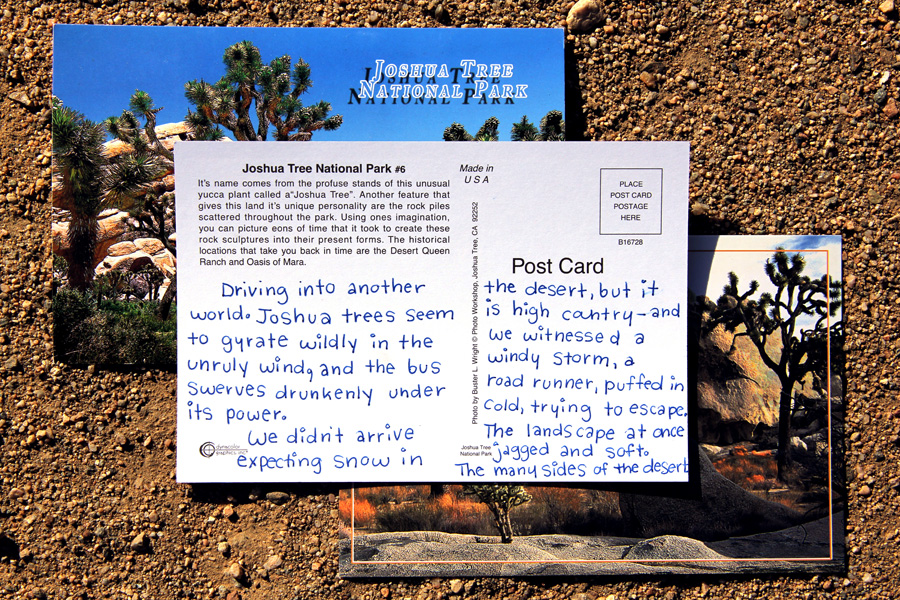 JOSHUA TREE
NATIONAL PARK
Joshua Tree National Park #6
It's name comes from the profuse stands of this unusual
yucca plant called a“Joshua Tree”. Another feature that
gives this land it's unique personality are the rock piles
scattered throughout the park. Using ones imagination,
you can picture eons of time that it took to create these
rock sculptures into their present forms. The historical
locations that take you back in time are the Desert Queen
Ranch and Oasis of Mara.
Driving into another
world. Joshua trees seem
to gyrate wildly in the
unruly wind, and the bus
swerves drunkenly under
its power.
We didn't arrive
expecting snow in
dynacolor
graphics, inc.
Made in
U S A
Photo by Buster L. Wright © Photo Workshop, Joshua Tree, CA 92252
Joshua Tree
National Park
PLACE
POST CARD
POSTAGE
HERE
B16728
Post Card
the desert, but it
is high cantry-and
we witnessed a
windy storm, a
road runner, puffed in
cold, trying to escape.
The landscape at once
jagged and soft.
The many sides of the desert